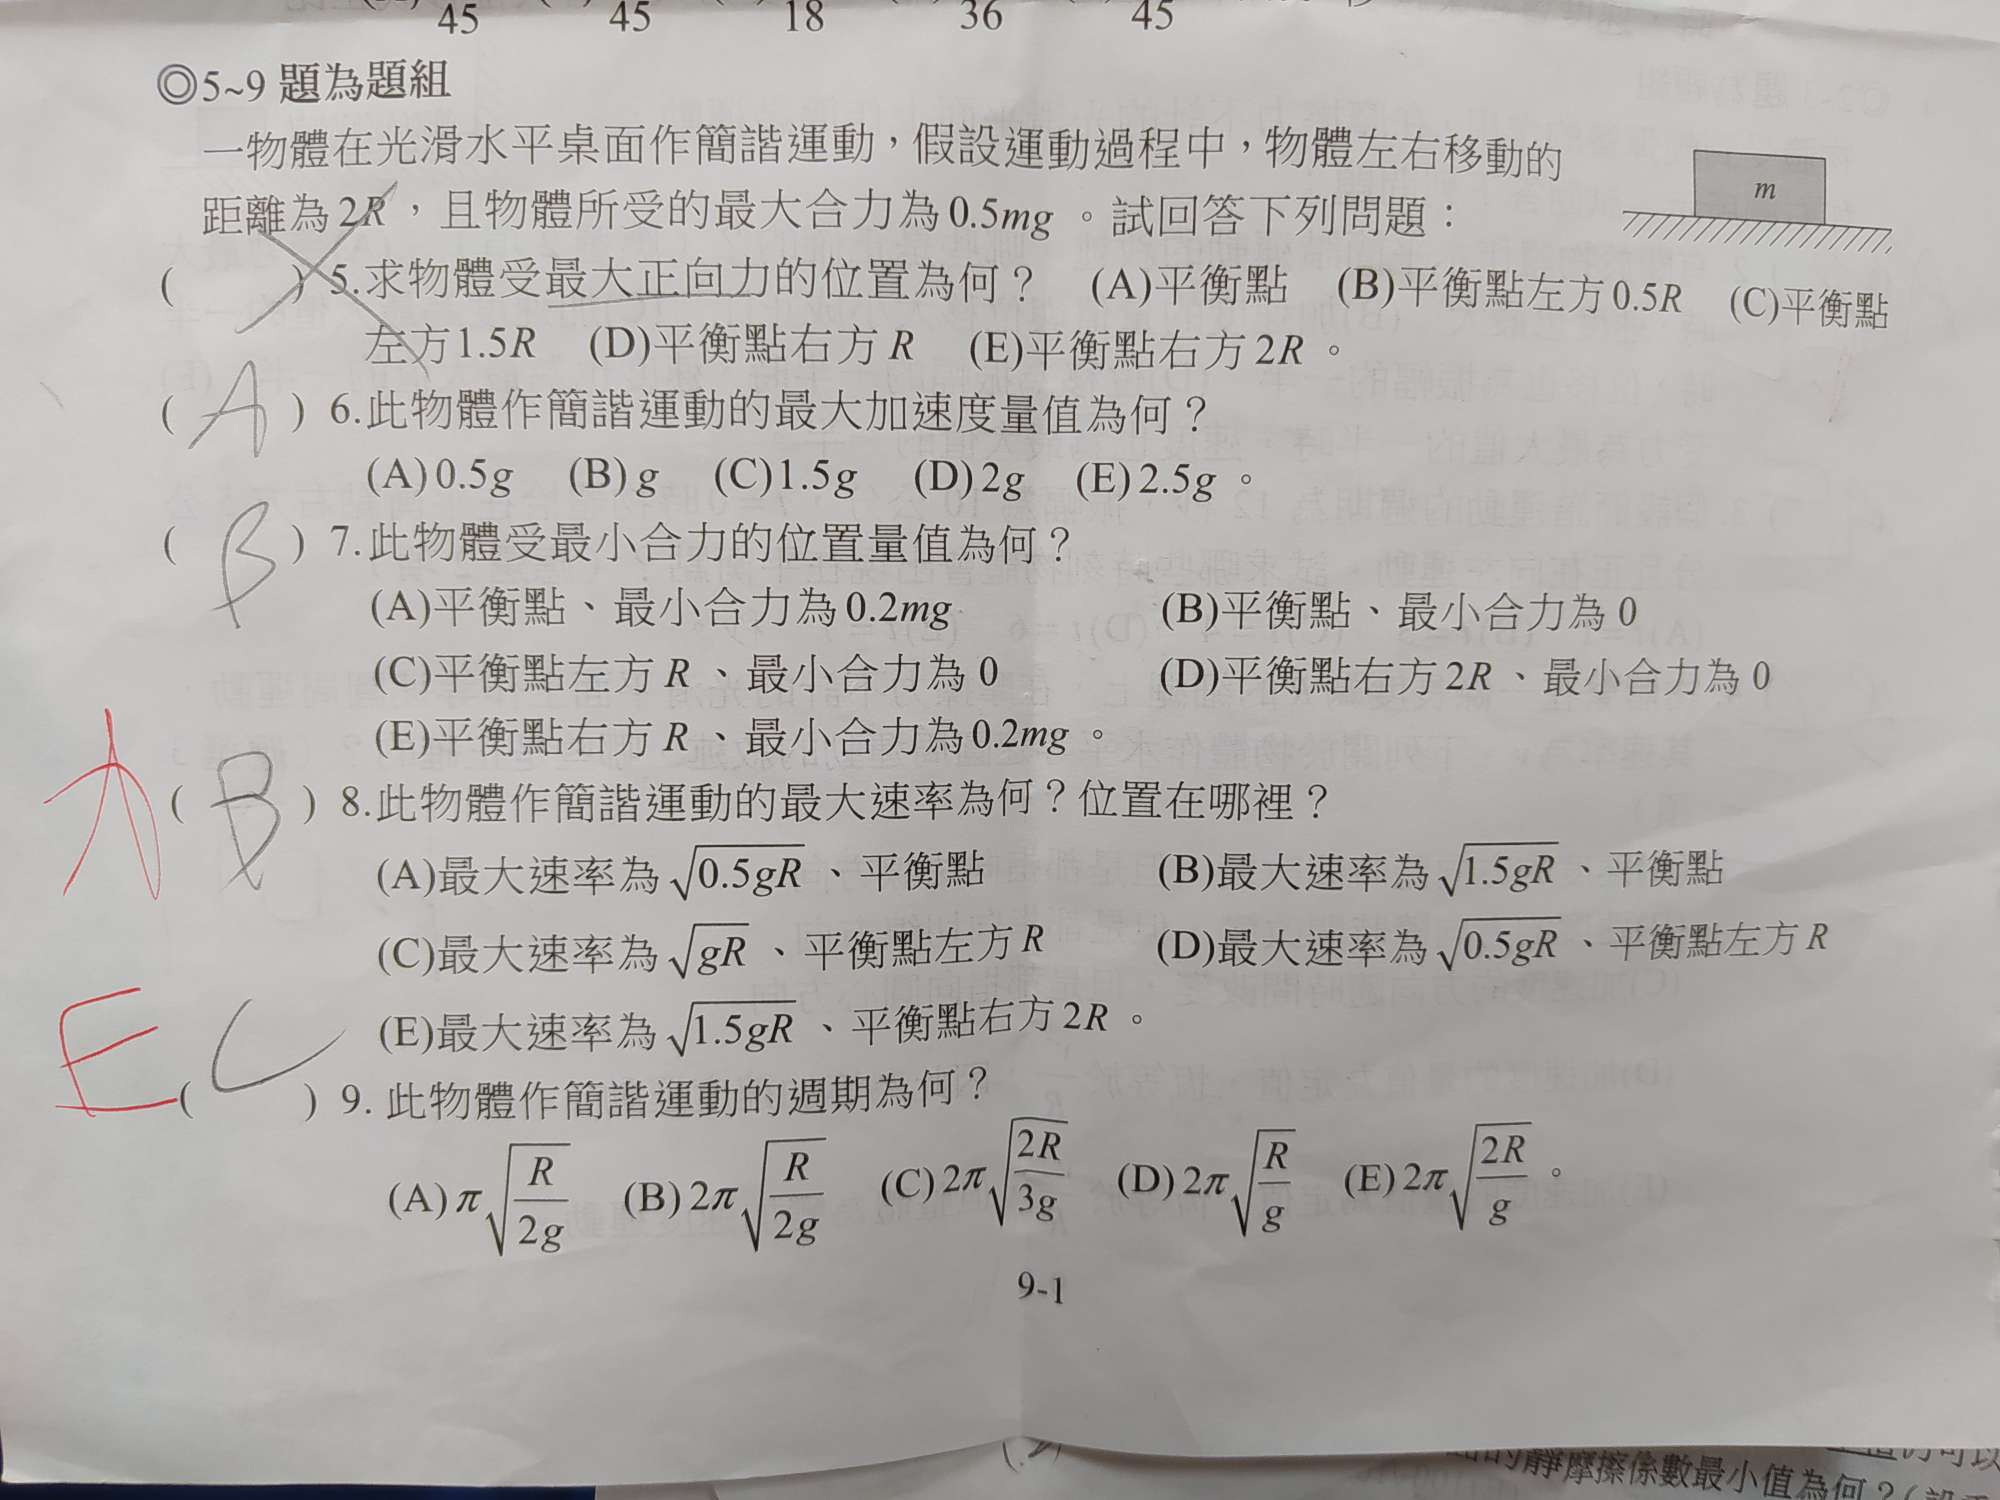 45 45 18 36 45
◎5~9 題為題組
一物體在光滑水平桌面作簡諧運動，假設運動過程中，物體左右移動的
距離為2R，且物體所受的最大合力為0.5mg。試回答下列問題：
m
( ) 5.求物體受最大正向力的位置為何？ (A)平衡點 (B)平衡點左方0.5R (C)平衡點
左方1.5R (D)平衡點右方R (E)平衡點右方2R。
( A ) 6.此物體作簡諧運動的最大加速度量值為何？
(A)0.5g (B)g (C)1.5g (D)2g (E)2.5g。
( B ) 7.此物體受最小合力的位置量值為何？
(A)平衡點、最小合力為0.2mg (B)平衡點、最小合力為0
(C)平衡點左方R、最小合力為0 (D)平衡點右方2R、最小合力為0
(E)平衡點右方R、最小合力為0.2mg。
A ( B ) 8.此物體作簡諧運動的最大速率為何？位置在哪裡？
(A)最大速率為√0.5gR、平衡點 (B)最大速率為√1.5gR、平衡點
(C)最大速率為√gR、平衡點左方R (D)最大速率為√0.5gR、平衡點左方R
(E)最大速率為√1.5gR、平衡點右方2R。
E ( C ) 9. 此物體作簡諧運動的週期為何？
(A)π√(R/2g) (B)2π√(R/2g) (C)2π√(2R/3g) (D)2π√(R/g) (E)2π√(2R/g)。
9-1
的靜摩擦係數最小值為何？(